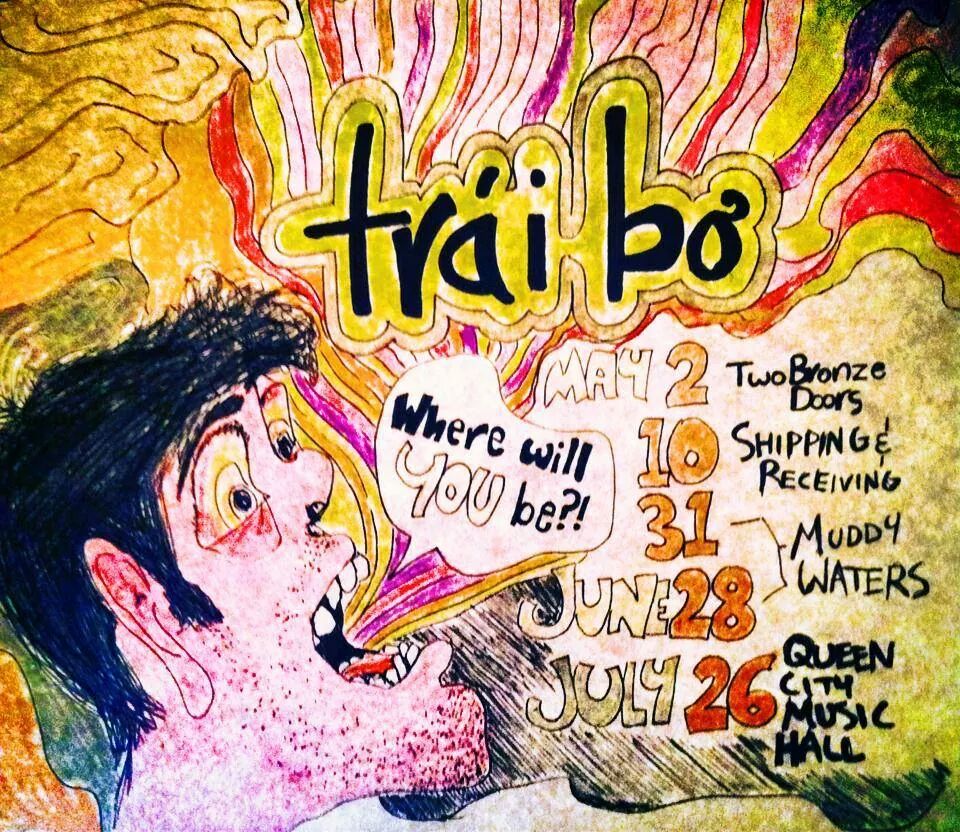 trái bơ
Where will
YOU be?!
MAY 2 Two Bronze
Doors
10 SHIPPING &
RECEIVING
31
MUDDY
WATERS
JUNE 28
JULY 26 QUEEN
CITY
MUSIC
HALL